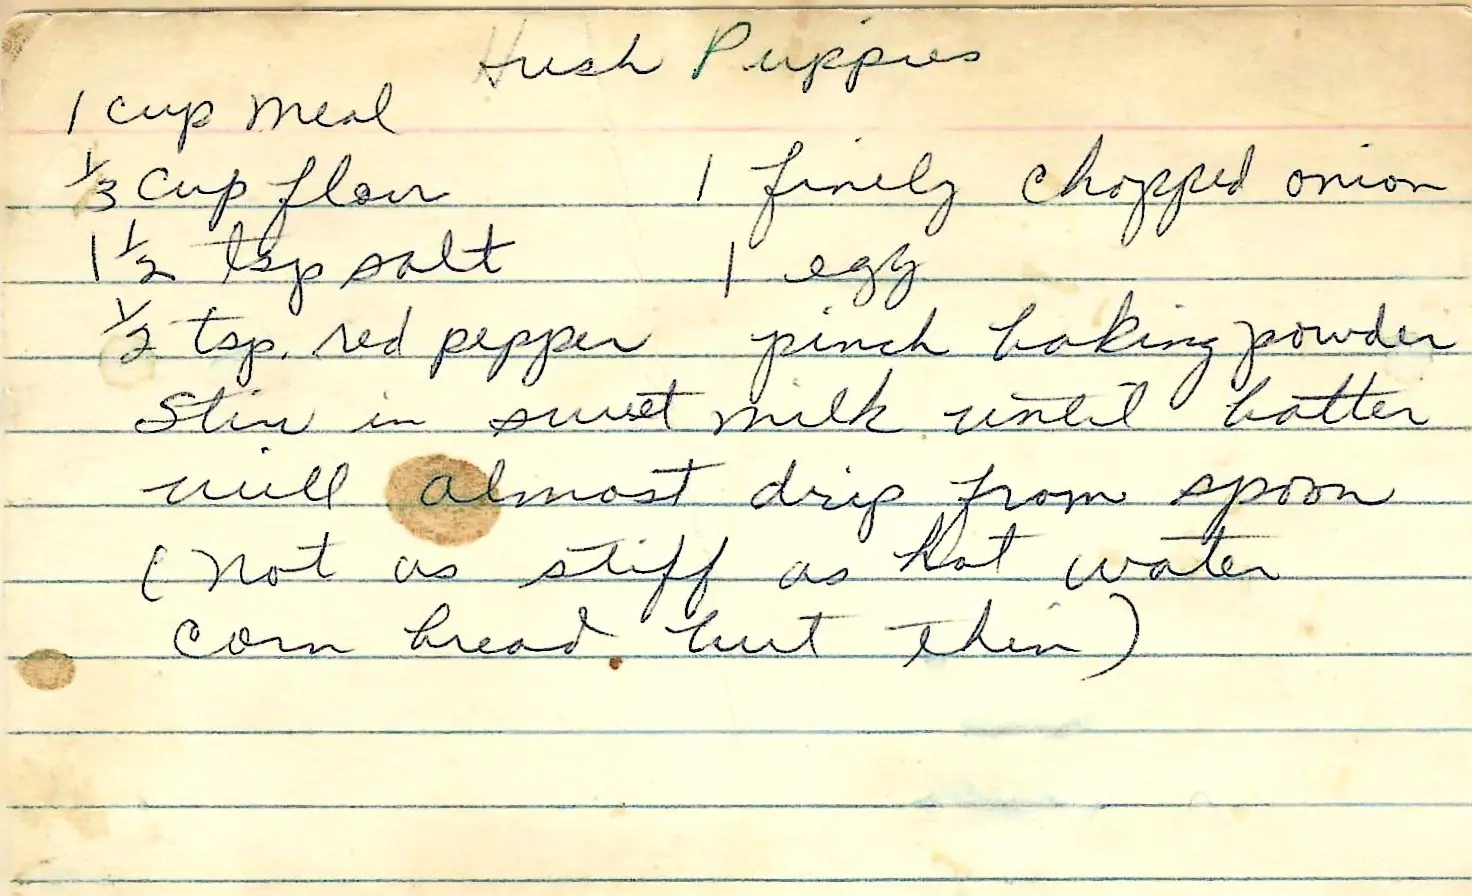 Hush Puppies
1 cup meal
1/3 cup flour
1 finely chopped onion
1 1/2 tsp salt
1 egg
1/2 tsp. red pepper
pinch baking powder
Stir in sweet milk until batter
will almost drip from spoon
(not as stiff as hot water
corn bread but thin)